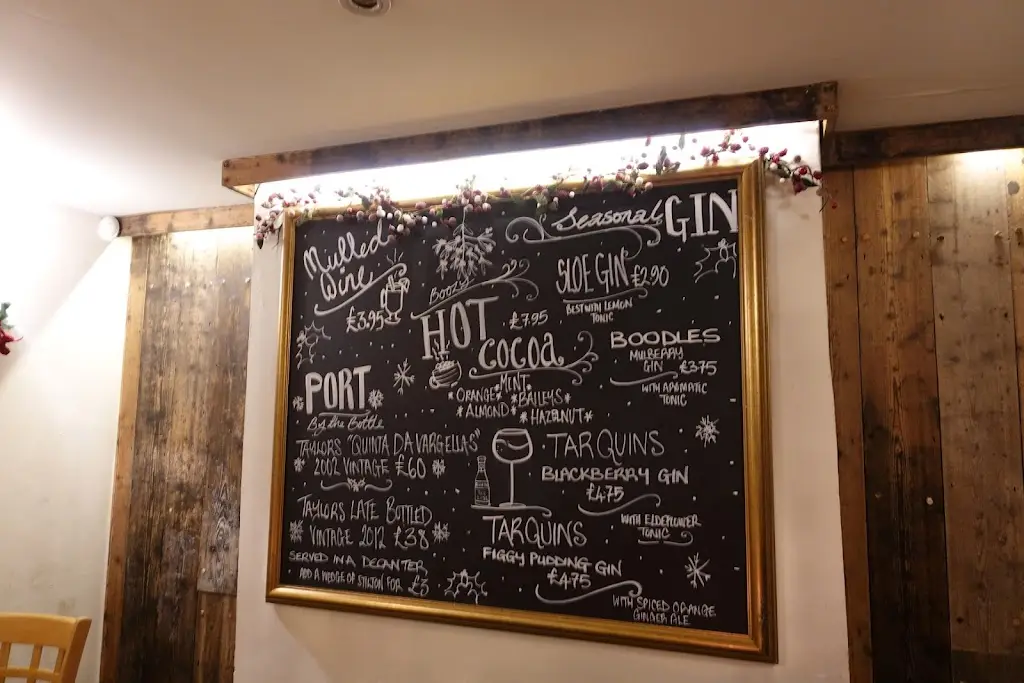 Mulled
Wine
£3.95
PORT
By the Bottle
TAYLORS "QUINTA DA VARGELLAS"
2002 VINTAGE £60
TAYLORS LATE BOTTLED
VINTAGE 2012 £38
SERVED IN A DECANTER
ADD A WEDGE OF STILTON FOR £3
Boozy
HOT
£7.95
COCOA
*MINT*
*ORANGE* *BAILEYS*
*ALMOND*
*HAZELNUT*
Seasonal GIN
SLOE GIN £2.90
BEST WITH LEMON
TONIC
BOODLES
MULBERRY
GIN £3.75
WITH AROMATIC
TONIC
TARQUINS
BLACKBERRY GIN
£4.75
WITH ELDERFLOWER
TONIC
TARQUINS
FIGGY PUDDING GIN
£4.75
WITH SPICED ORANGE
GINGER ALE